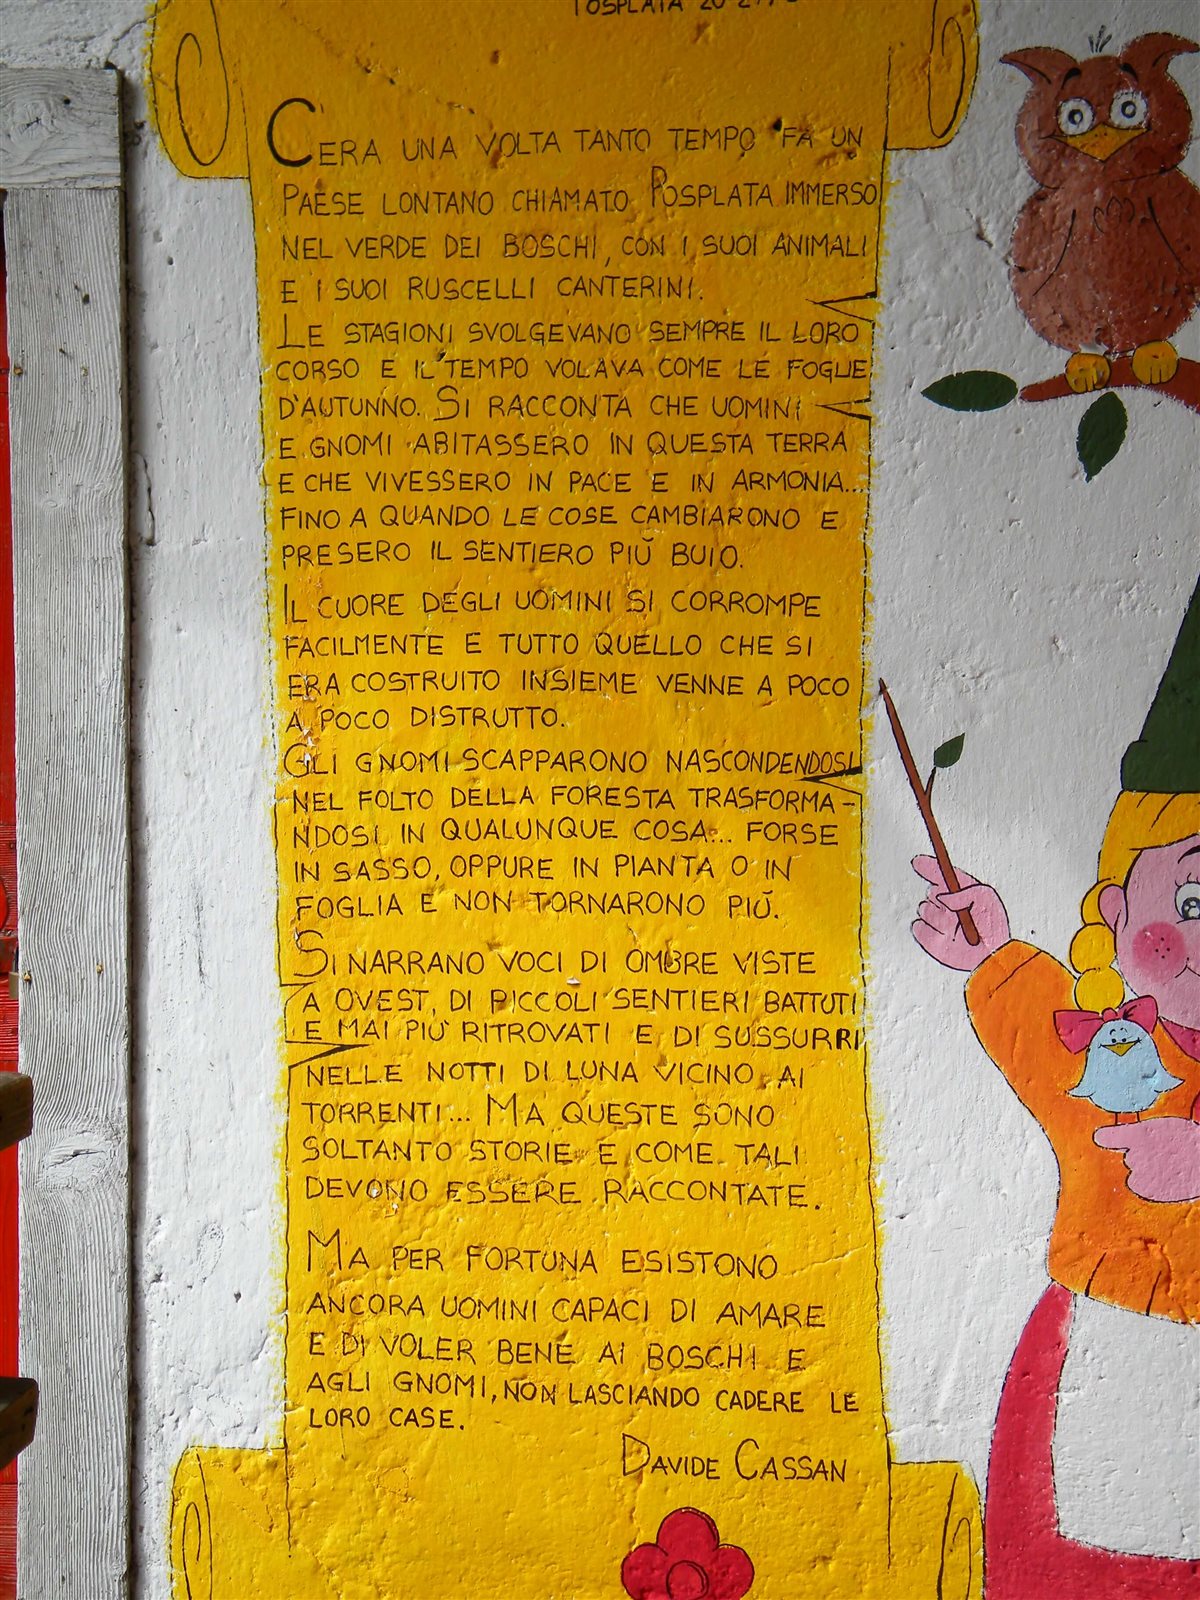 POSPLATA 20
C'ERA UNA VOLTA TANTO TEMPO FA UN
PAESE LONTANO CHIAMATO POSPLATA IMMERSO
NEL VERDE DEI BOSCHI, CON I SUOI ANIMALI
E I SUOI RUSCELLI CANTERINI.
LE STAGIONI SVOLGEVANO SEMPRE IL LORO
CORSO E IL TEMPO VOLAVA COME LE FOGLIE
D'AUTUNNO. SI RACCONTA CHE UOMINI
E GNOMI ABITASSERO IN QUESTA TERRA
E CHE VIVESSERO IN PACE E IN ARMONIA...
FINO A QUANDO LE COSE CAMBIARONO E
PRESERO IL SENTIERO PIŬ BUIO.
IL CUORE DEGLI UOMINI SI CORROMPE
FACILMENTE E TUTTO QUELLO CHE SI
ERA COSTRUITO INSIEME VENNE A POCO
A POCO DISTRUTTO.
GLI GNOMI SCAPPARONO NASCONDENDOSI
NEL FOLTO DELLA FORESTA TRASFORMA-
NDOSI IN QUALUNQUE COSA... FORSE
IN SASSO, OPPURE IN PIANTA O IN
FOGLIA E NON TORNARONO PIŬ.
SI NARRANO VOCI DI OMBRE VISTE
A OVEST, DI PICCOLI SENTIERI BATTUTI
E MAI PIÙ RITROVATI E DI SUSSURRI
NELLE NOTTI DI LUNA VICINO AI
TORRENTI... MA QUESTE SONO
SOLTANTO STORIE E COME TALI
DEVONO ESSERE RACCONTATE.
MA PER FORTUNA ESISTONO
ANCORA UOMINI CAPACI DI AMARE
E DI VOLER BENE AI BOSCHI E
AGLI GNOMI, NON LASCIANDO CADERE LE
LORO CASE.
DAVIDE CASSAN